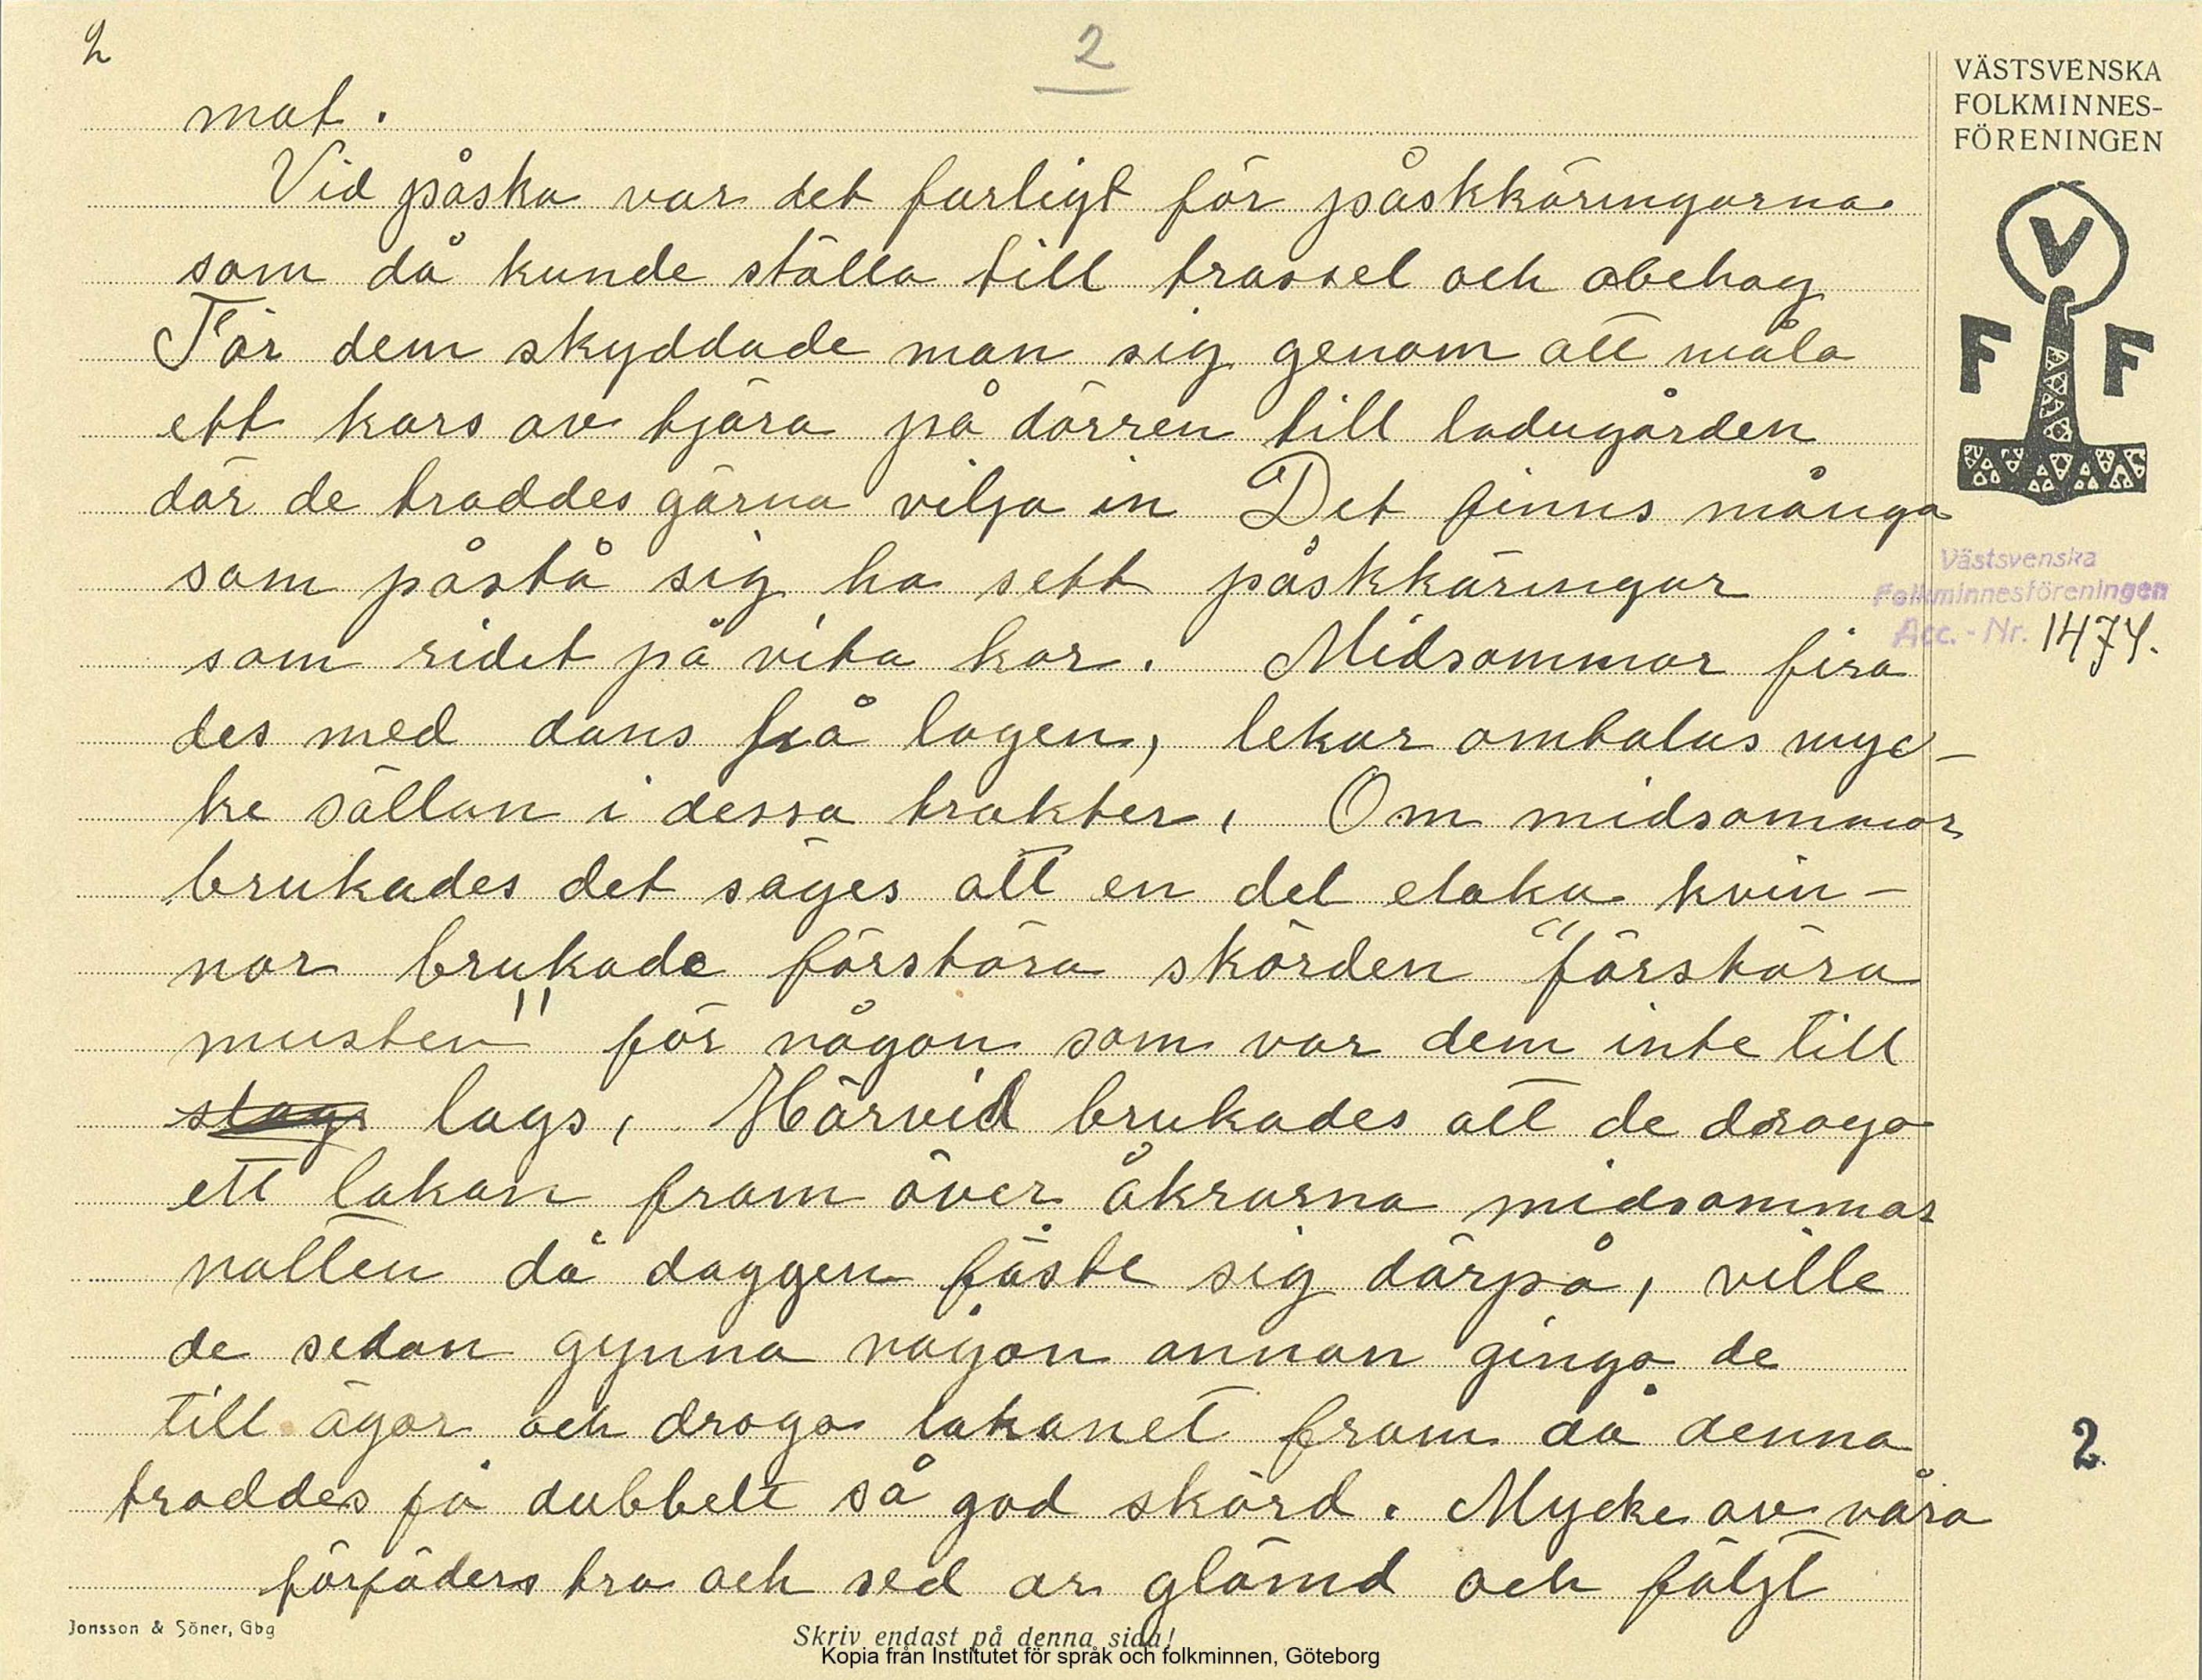 2
2
VÄSTSVENSKA
FOLKMINNES-
FÖRENINGEN
V
F F
mat.
Vid påska var det farligt för påskkäringarna
som då kunde ställa till trassel och obehag
För dem skyddade man sig genom att måla
ett kors av tjära på dörren till ladugården
där de troddes gärna vilja in Det finns många
som påstå sig ha sett påskkäringar
som ridit på vita kor. Midsommar fira
des med dans på logen, lekar omtalas myc-
ke sällan i dessa trakter, Om midsommar
brukades det säges att en del elaka kvin-
nor brukade förstöra skörden "förstöra
musten" för någon som var dem inte till
slags lags, Härvid brukades att de drogo
ett lakan fram över åkrarna midsommar
natten då daggen fäste sig därpå, ville
de sedan gynna någon annan gingo de
till ägor och drogo lakanet fram då denna
troddes få dubbelt så god skörd. Mycke av våra
förfäders tro och sed är glömd och följt
Västsvenska
Folkminnesföreningen
Acc.-Nr. 1474.
2
Jonsson & Söner, Gbg
Skriv endast på denna sida!
Kopia från Institutet för språk och folkminnen, Göteborg